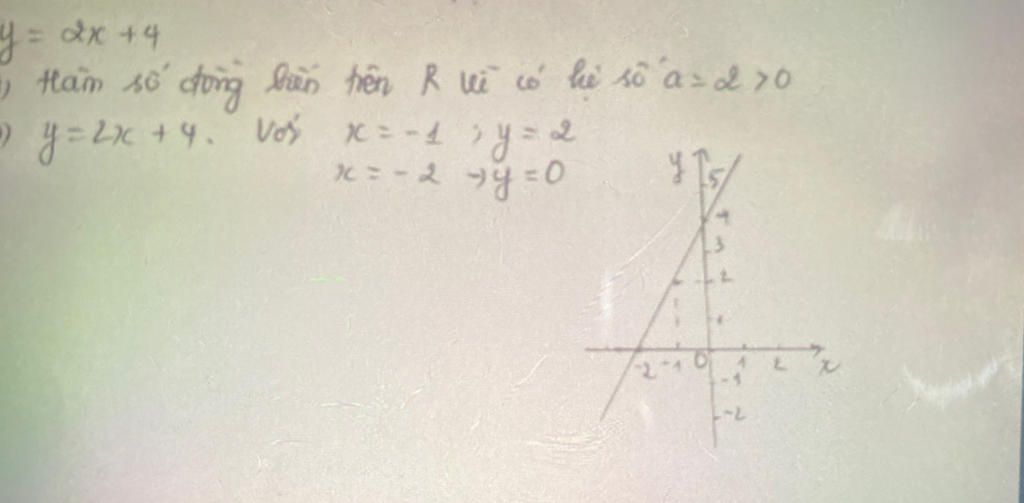 y = 2x + 4
) Hàm số đồng biến trên R vì có hệ số a = 2 > 0
) y = 2x + 4. Với x = -1 ; y = 2
x = -2 → y = 0
y
5
4
3
2
1
-2 -1 0 1 2 x
-1
-2